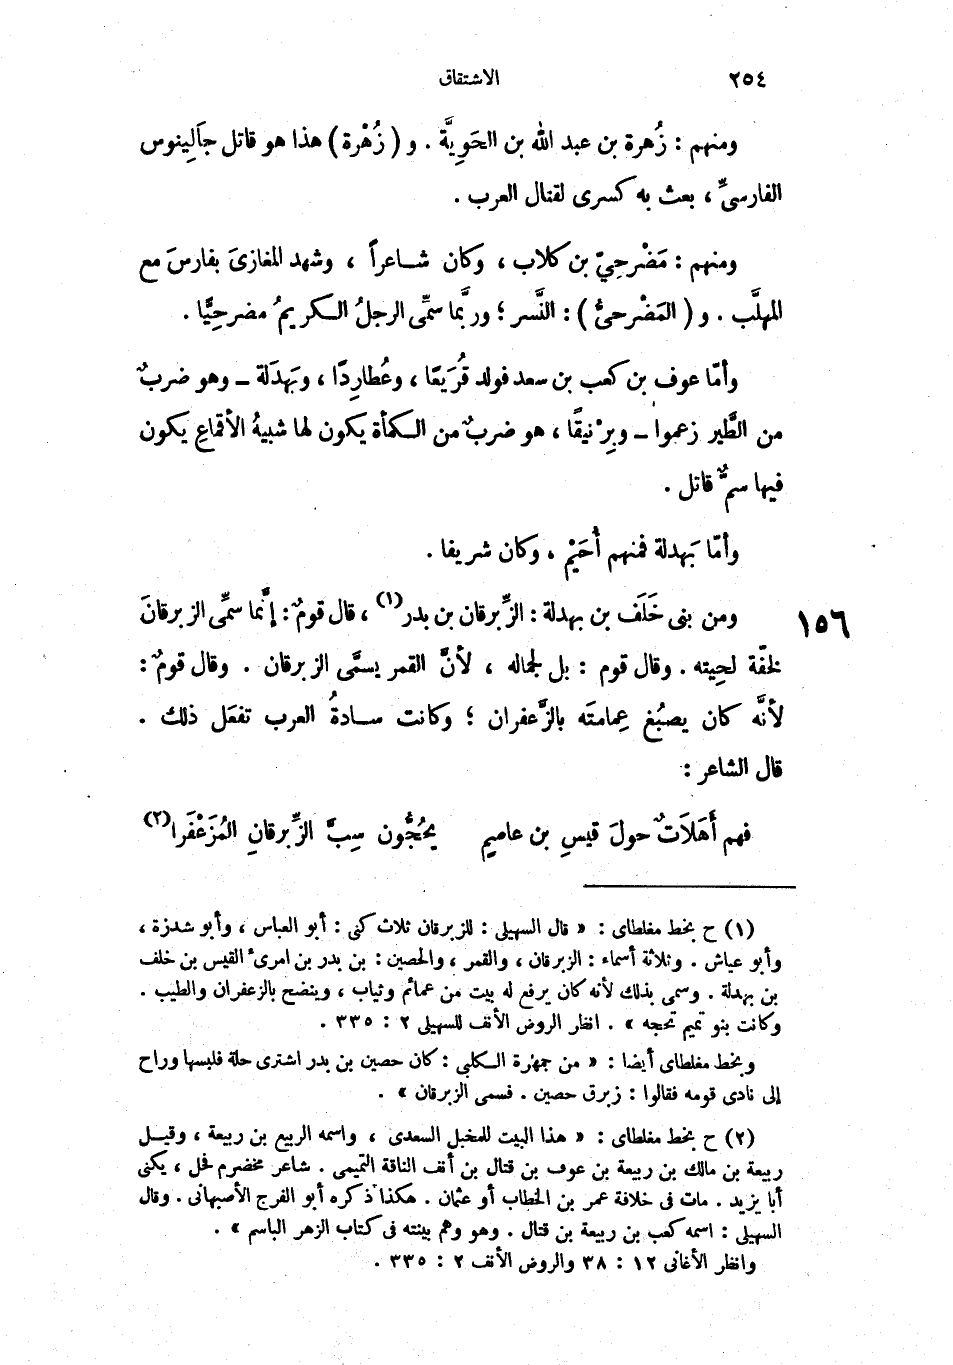 ٢٥٤ الاشتقاق
ومنهم : زُهرة بن عبد الله بن الحَوِيَّة . و ( زُهْرة ) هذا هو قاتل جالينوس
الفارسىِّ ، بعث به كسرى لقتال العرب .
ومنهم : مَضْرحِيّ بن كلاب ، وكان شاعراً ، وشهد المغازىَ بفارسَ مع
المهلَّب . و ( المَضْرحىُّ ) : النَّسر ؛ وربَّما سمِّى الرجلُ الكريمُ مضرحِيًّا .
وأمّا عوف بن كعب بن سعد فولد قُرَيعًا ، وعُطارِدًا ، وبَهدَلة – وهو ضربٌ
من الطَّير زعموا – وبِرْنيقًا ، هو ضربٌ من الكمأة يكون لها شبيهُ الأقماعِ يكون
فيها سمٌّ قاتل .
وأمّا بَهدلة فمنهم أُحَيْم ، وكان شريفا .
ومن بنى خَلَف بن بهدلة : الزِّبرقان بن بدر(١) ، قال قومٌ : إنَّما سمِّى الزبرقانَ
١٥٦
لخفّة لحيته . وقال قوم : بل لجماله ، لأنَّ القمر يسمَّى الزبرقان . وقال قومٌ :
لأنَّه كان يصبُغ عِمامتَه بالزَّعفران ؛ وكانت سادةُ العرب تفعَل ذلك .
قال الشاعر :
فهم أَهَلاَتٌ حولَ قيسِ بن عاصمٍ يحُجُّون سِبَّ الزِّبرقانِ المُزَعْفَرا(٢)
(١) ح بخط مغلطاى : « قال السهيلى : للزبرقان ثلاث كنى : أبو العباس ، وأبو شدزة ،
وأبو عياش . وثلاثة أسماء : الزبرقان ، والقمر ، والحصين : بن بدر بن امرىٔ القيس بن خلف
بن بهدلة . وسمى بذلك لأنه كان يرفع له بيت من عمائم وثياب ، وينضح بالزعفران والطيب .
وكانت بنو تميم تحجه » . انظر الروض الأنف للسهيلى ٢ : ٣٣٥ .
وبخط مغلطاى أيضا : « من جمهرة الكلبى : كان حصين بن بدر اشترى حلة فلبسها وراح
إلى نادى قومه فقالوا : زبرق حصين . فسمى الزبرقان » .
(٢) ح بخط مغلطاى : « هذا البيت للمخبل السعدى ، واسمه الربيع بن ربيعة ، وقيل
ربيعة بن مالك بن ربيعة بن عوف بن قتال بن أنف الناقة التميمى . شاعر مخضرم فحل ، يكنى
أبا يزيد . مات فى خلافة عمر بن الخطاب أو عثمان . هكذا ذكره أبو الفرج الأصبهانى . وقال
السهيلى : اسمه كعب بن ربيعة بن قتال . وهو وهم بينته فى كتاب الزهر الباسم » .
وانظر الأغانى ١٢ : ٣٨ والروض الأنف ٢ : ٣٣٥ .